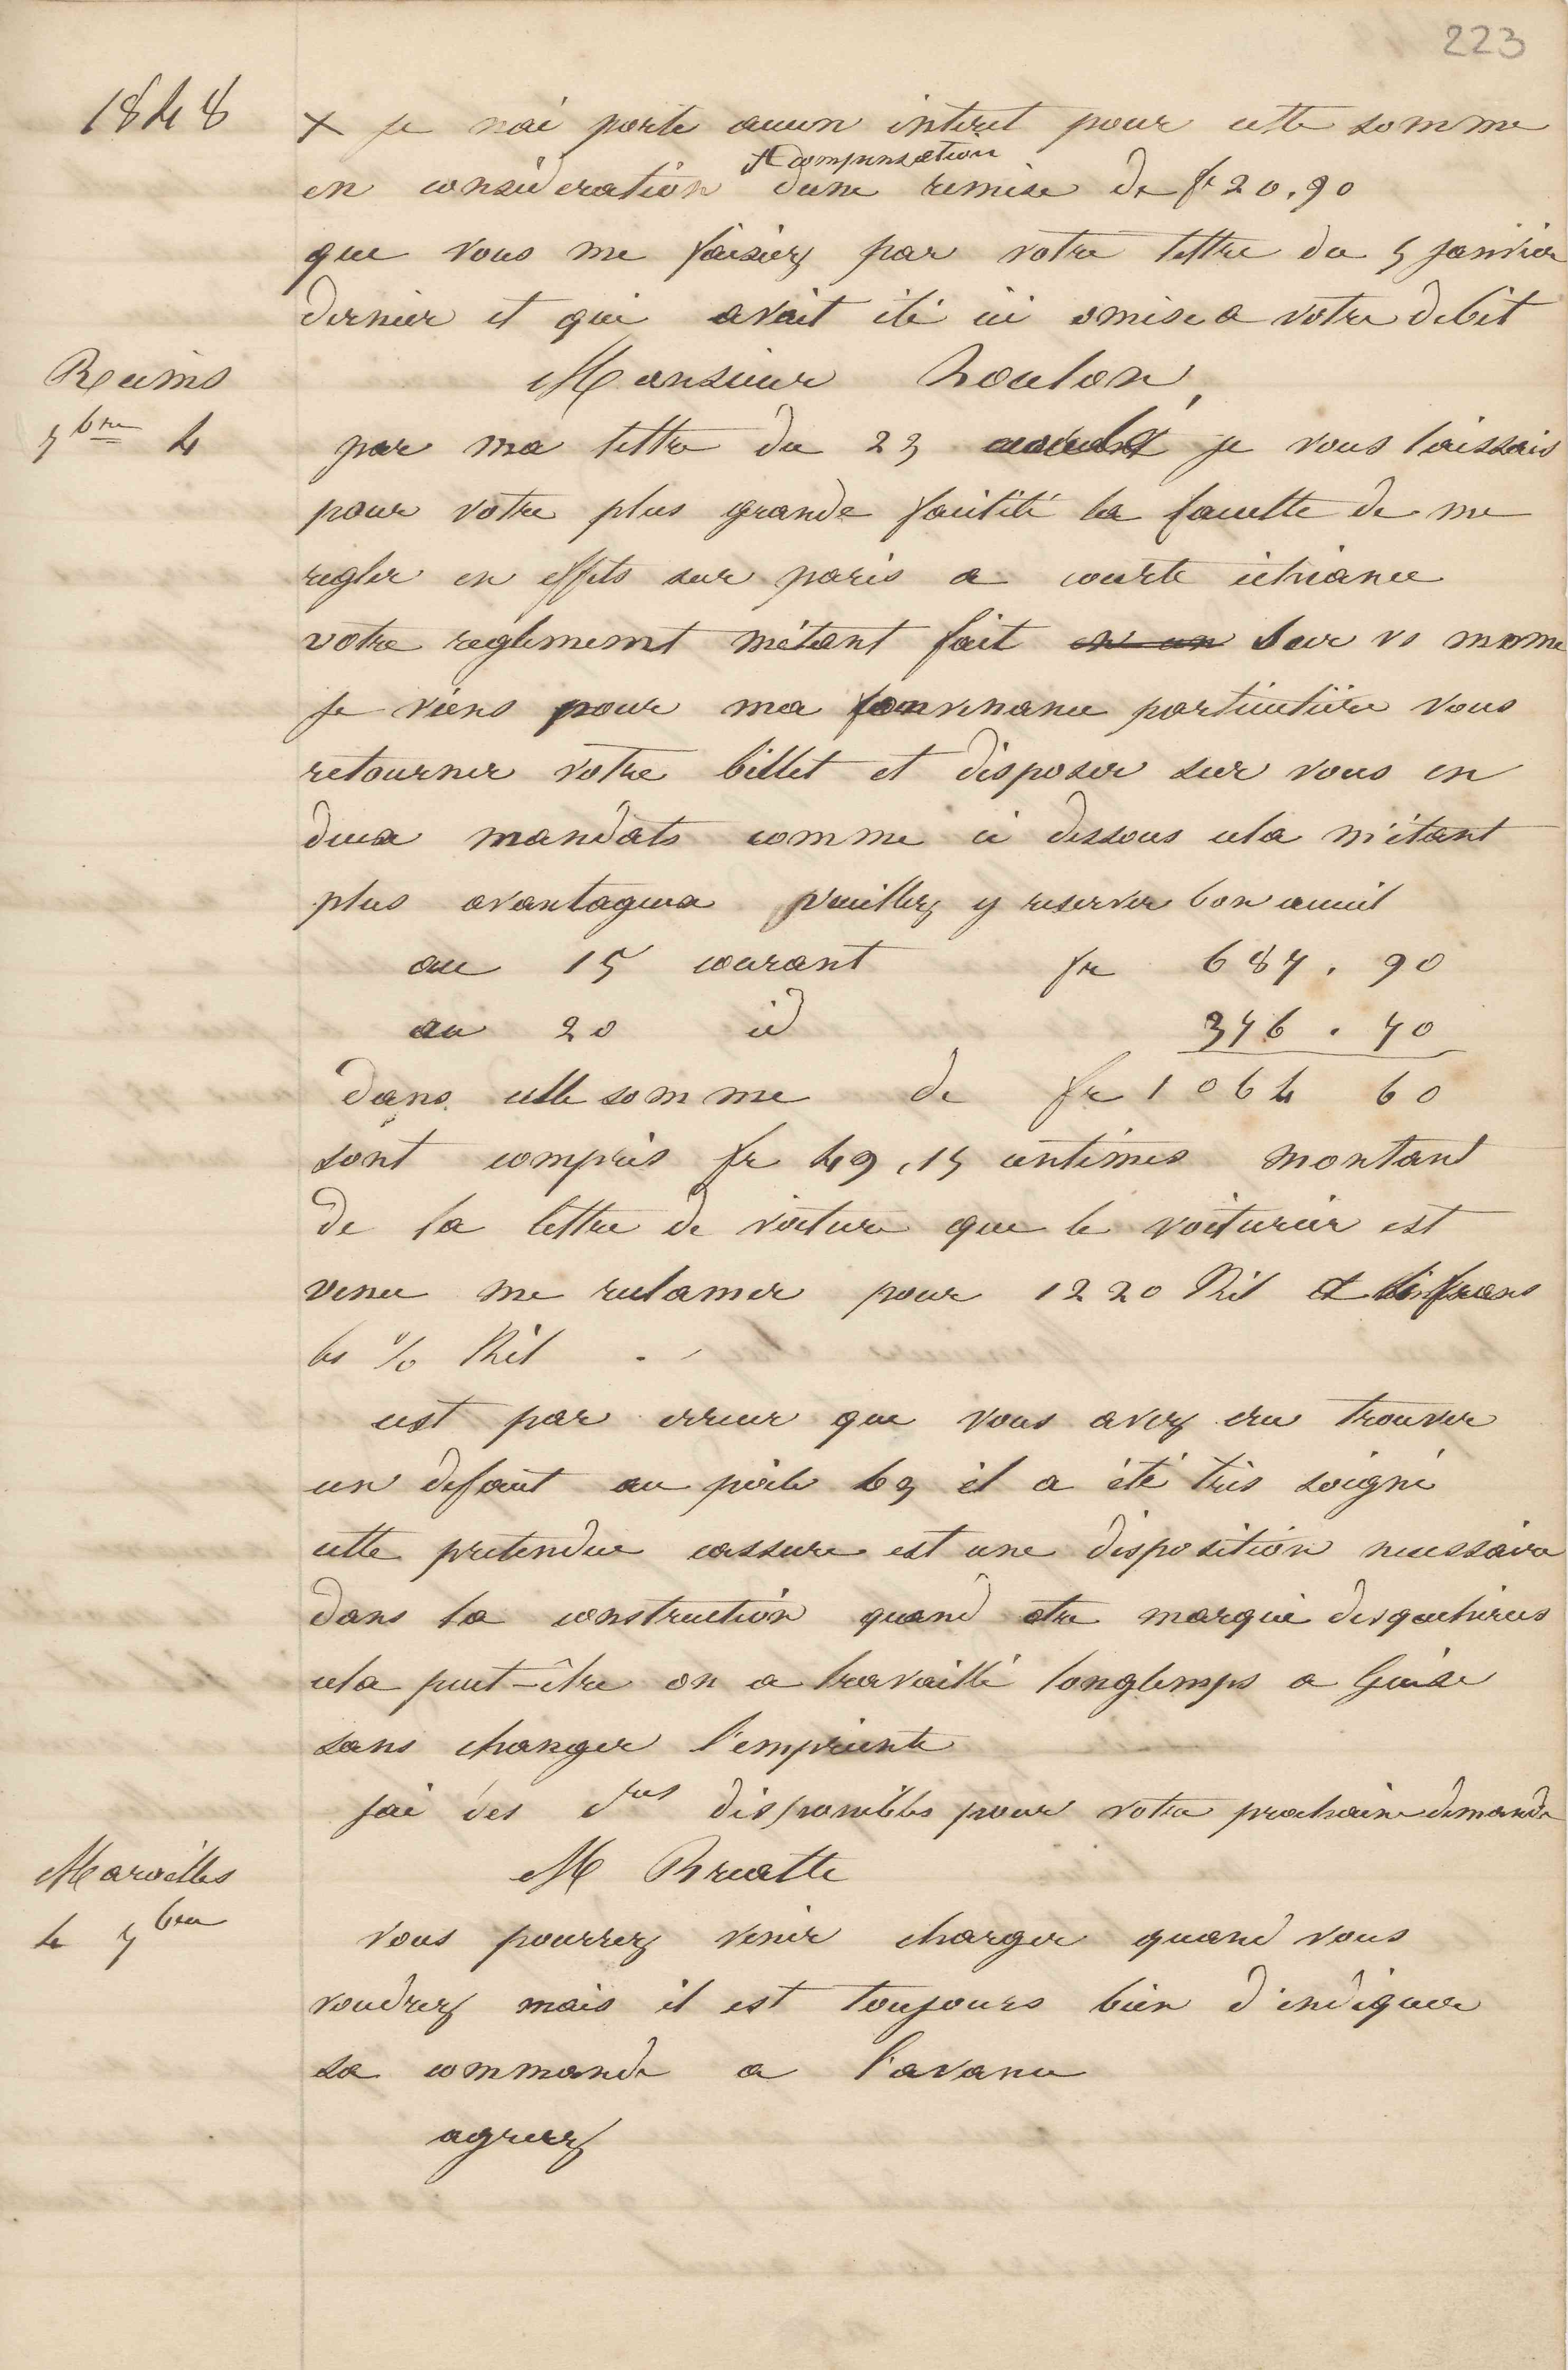 223
1848
x je nai porte aucun interet pour cette somme
et compensation
en consideration dune remise de fr 20.90
que vous me faisiez par votre lettre du 5 janvier
dernier et qui avait été ici omise a votre debit
Reims
7bre 4
Monsieur Houlon,
par ma lettre du 23 je vous laissais
pour votre plus grande facilité la faculte de me
regler en effets sur paris a courte échéance
votre reglement m'étant fait en un sur vs meme
je viens pour ma convenance particulière vous
retourner votre billet et disposer sur vous en
deux mandats comme ci dessous cela m'étant
plus avantageux veuillez y reserver bon acceuil
au 15 courant fr 687.90
au 20 id 376.70
dans cette somme de fr 1064 60
sont compris fr 49,15 centimes montant
de la lettre de voiture que le voiturier est
venu me reclamer pour 1220 Kil et
les % Kil
cest par erreur que vous avez cru trouver
un defaut au poele 63 il a été très soigné
cette pretendue cassure est une disposition necessaire
dans la construction quand etre marqué desquehires
cela peut-être on a travaillé longtemps a Guise
sans changer l'empreinte
jai des drus disponibles pour votre prochaine demande
Maroilles
4 7bre
M Bruatte
vous pourrez venir charger quand vous
voudrez mais il est toujours bien d'indiquer
sa commande a l'avance
agreez